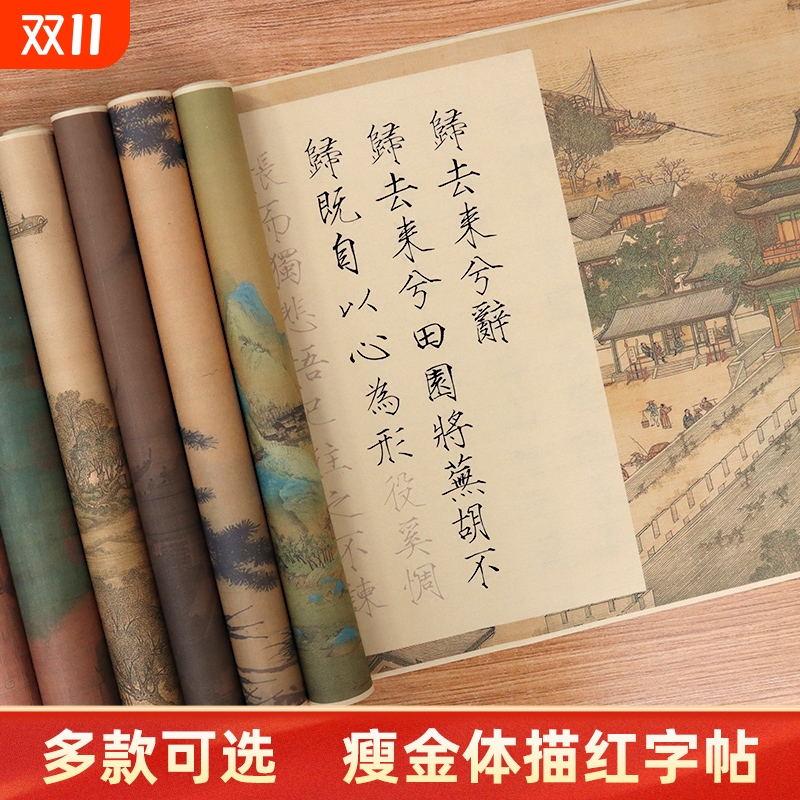 双11
歸去来兮辭
歸去来兮田園將蕪胡不
歸既自以心為形役奚惆
悵而獨悲悟已往之不諫
多款可选 瘦金体描红字帖